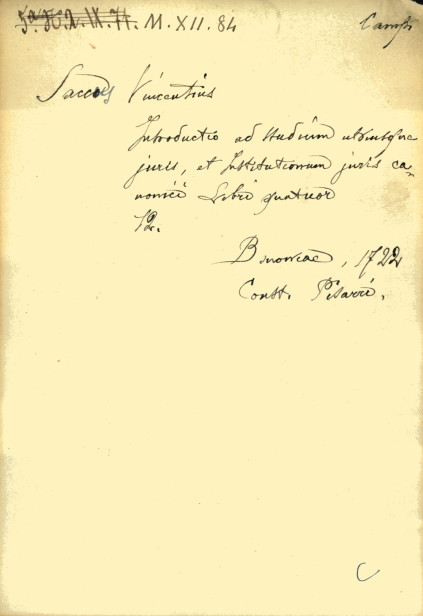 5ª H.2.IX.77. M.XII.84
Vincentius
Introductio ad studium utriusque
juris, et Institutionum juris ca-
nonici Libri quatuor
12.
Bononiae, 1722
Const. Pisarri.
C